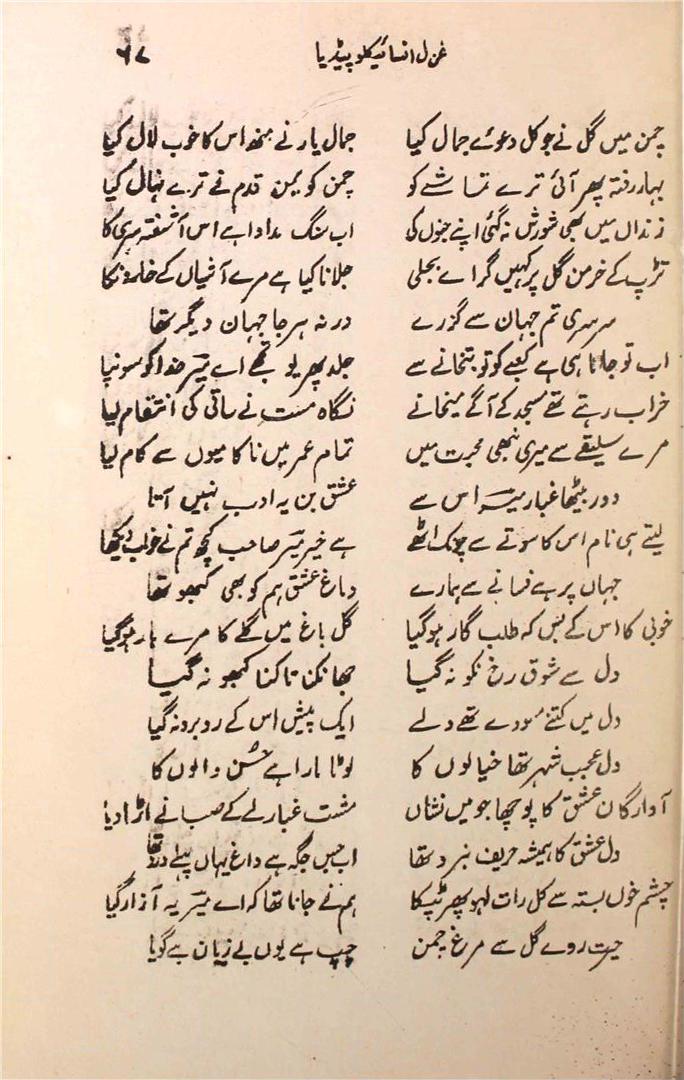 غزل انسائیکلوپیڈیا ۶۷
چمن میں گل نے جو کل دعوئے جمال کیا جمال یار نے منھ اس کا خوب لال کیا
بہار رفتہ پھر آئی ترے تماشے کو چمن کو یمن قدم نے ترے نہال کیا
زنداں میں بھی شورش نہ گئی اپنے جنوں کی اب سنگ مداوا ہے اس آشفتہ سری کا
تڑپ کے خرمن گل پر کہیں گر اے بجلی جلانا کیا ہے مرے آشیاں کے خاروں کا
سرسری تم جہان سے گزرے ورنہ ہر جا جہان دیگر تھا
اب تو جاتا ہی ہے کعبے کو تو بتخانے سے جلد پھر یو تجھے اے میرؔ خدا کو سونپا
خراب رہتے تھے مسجد کے آگے میخانے نگاہ مست نے ساقی کی انتقام لیا
مرے سلیقے سے میری نبھی محبت میں تمام عمر میں ناکامیوں سے کام لیا
دور بیٹھا غبار میرؔ اس سے عشق بن یہ ادب نہیں آتا
لیتے ہی نام اس کا سوتے سے چونک اٹھے ہے خیر میرؔ صاحب کچھ تم نے خواب دیکھا
جہاں پر ہے فسانے سے ہمارے دماغ عشق ہم کو بھی کبھو تھا
خوبی کا اس کے بس کہ طلب گار ہوگیا گل باغ میں گلے کا مرے ہار ہوگیا
دل سے شوق رخ نکو نہ گیا جھانکنا تاکنا کبھو نہ گیا
دل میں کتنے مسودے تھے ولے ایک پیش اس کے روبرو نہ گیا
دل عجب شہر تھا خیالوں کا لوٹا مارا ہے حسن والوں کا
آوارگان عشق کا پوچھا جو میں نشاں مشت غبار لے کے صبا نے اڑا دیا
دل عشق کا ہمیشہ حریف نبرد تھا اب جس جگہ ہے داغ یہاں پہلے درد تھا
چشم خوں بستہ سے کل رات لہو پھر ٹپکا ہم نے جانا تھا کہ اے میرؔ یہ آزار گیا
حیرت روے گل سے مرغ چمن چپ ہے یوں بے زبان ہے گویا